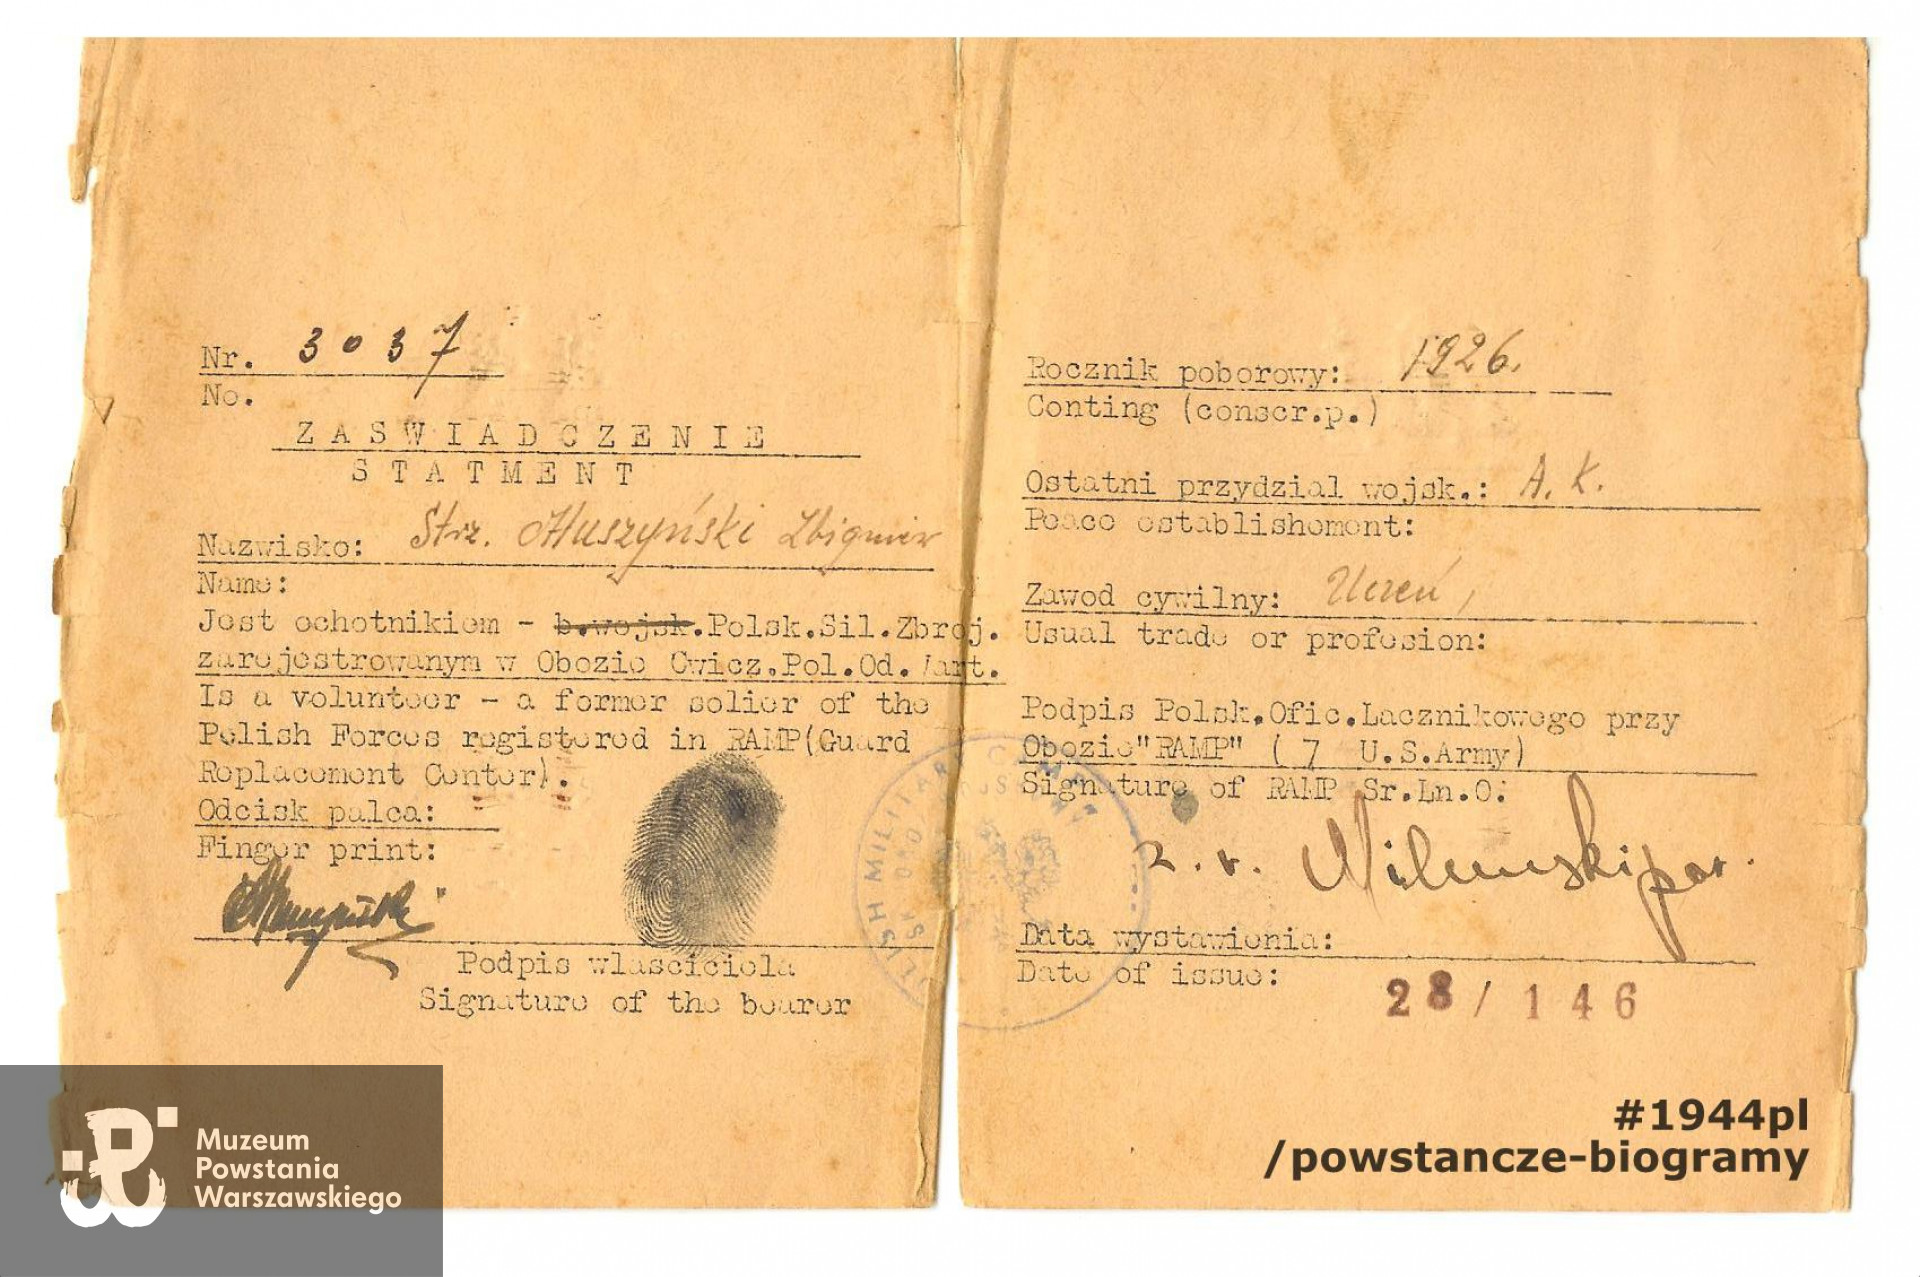 Nr. 3037
No.
ZASWIADCZENIE
STATMENT
Nazwisko: Strz. Muszyński Zbigniew
Name:
Jest ochotnikiem - b.wojsk.Polsk.Sil.Zbroj.
zarejestrowanym w Obozie Cwicz.Pol.Od.Wart.
Is a volunteer - a former solier of the
Polish Forces registered in RAMP(Guard
Replacement Center).
Odcisk palca:
Finger print:
Podpis wlasciciela
Signature of the bearer
Rocznik poborowy: 1926.
Conting (conscr.p.)
Ostatni przydzial wojsk.: A.K.
Peace establishement:
Zawod cywilny: Uczeń,
Usual trade or profesion:
Podpis Polsk.Ofic.Lacznikowego przy
Obozie"RAMP" ( 7 U.S.Army)
Signature of RAMP Sr.Ln.O:
z.r. por.
Data wystawienia:
Date of issue:
28/146
MILITARY
Muzeum
Powstania
Warszawskiego
#1944pl
/powstancze-biogramy